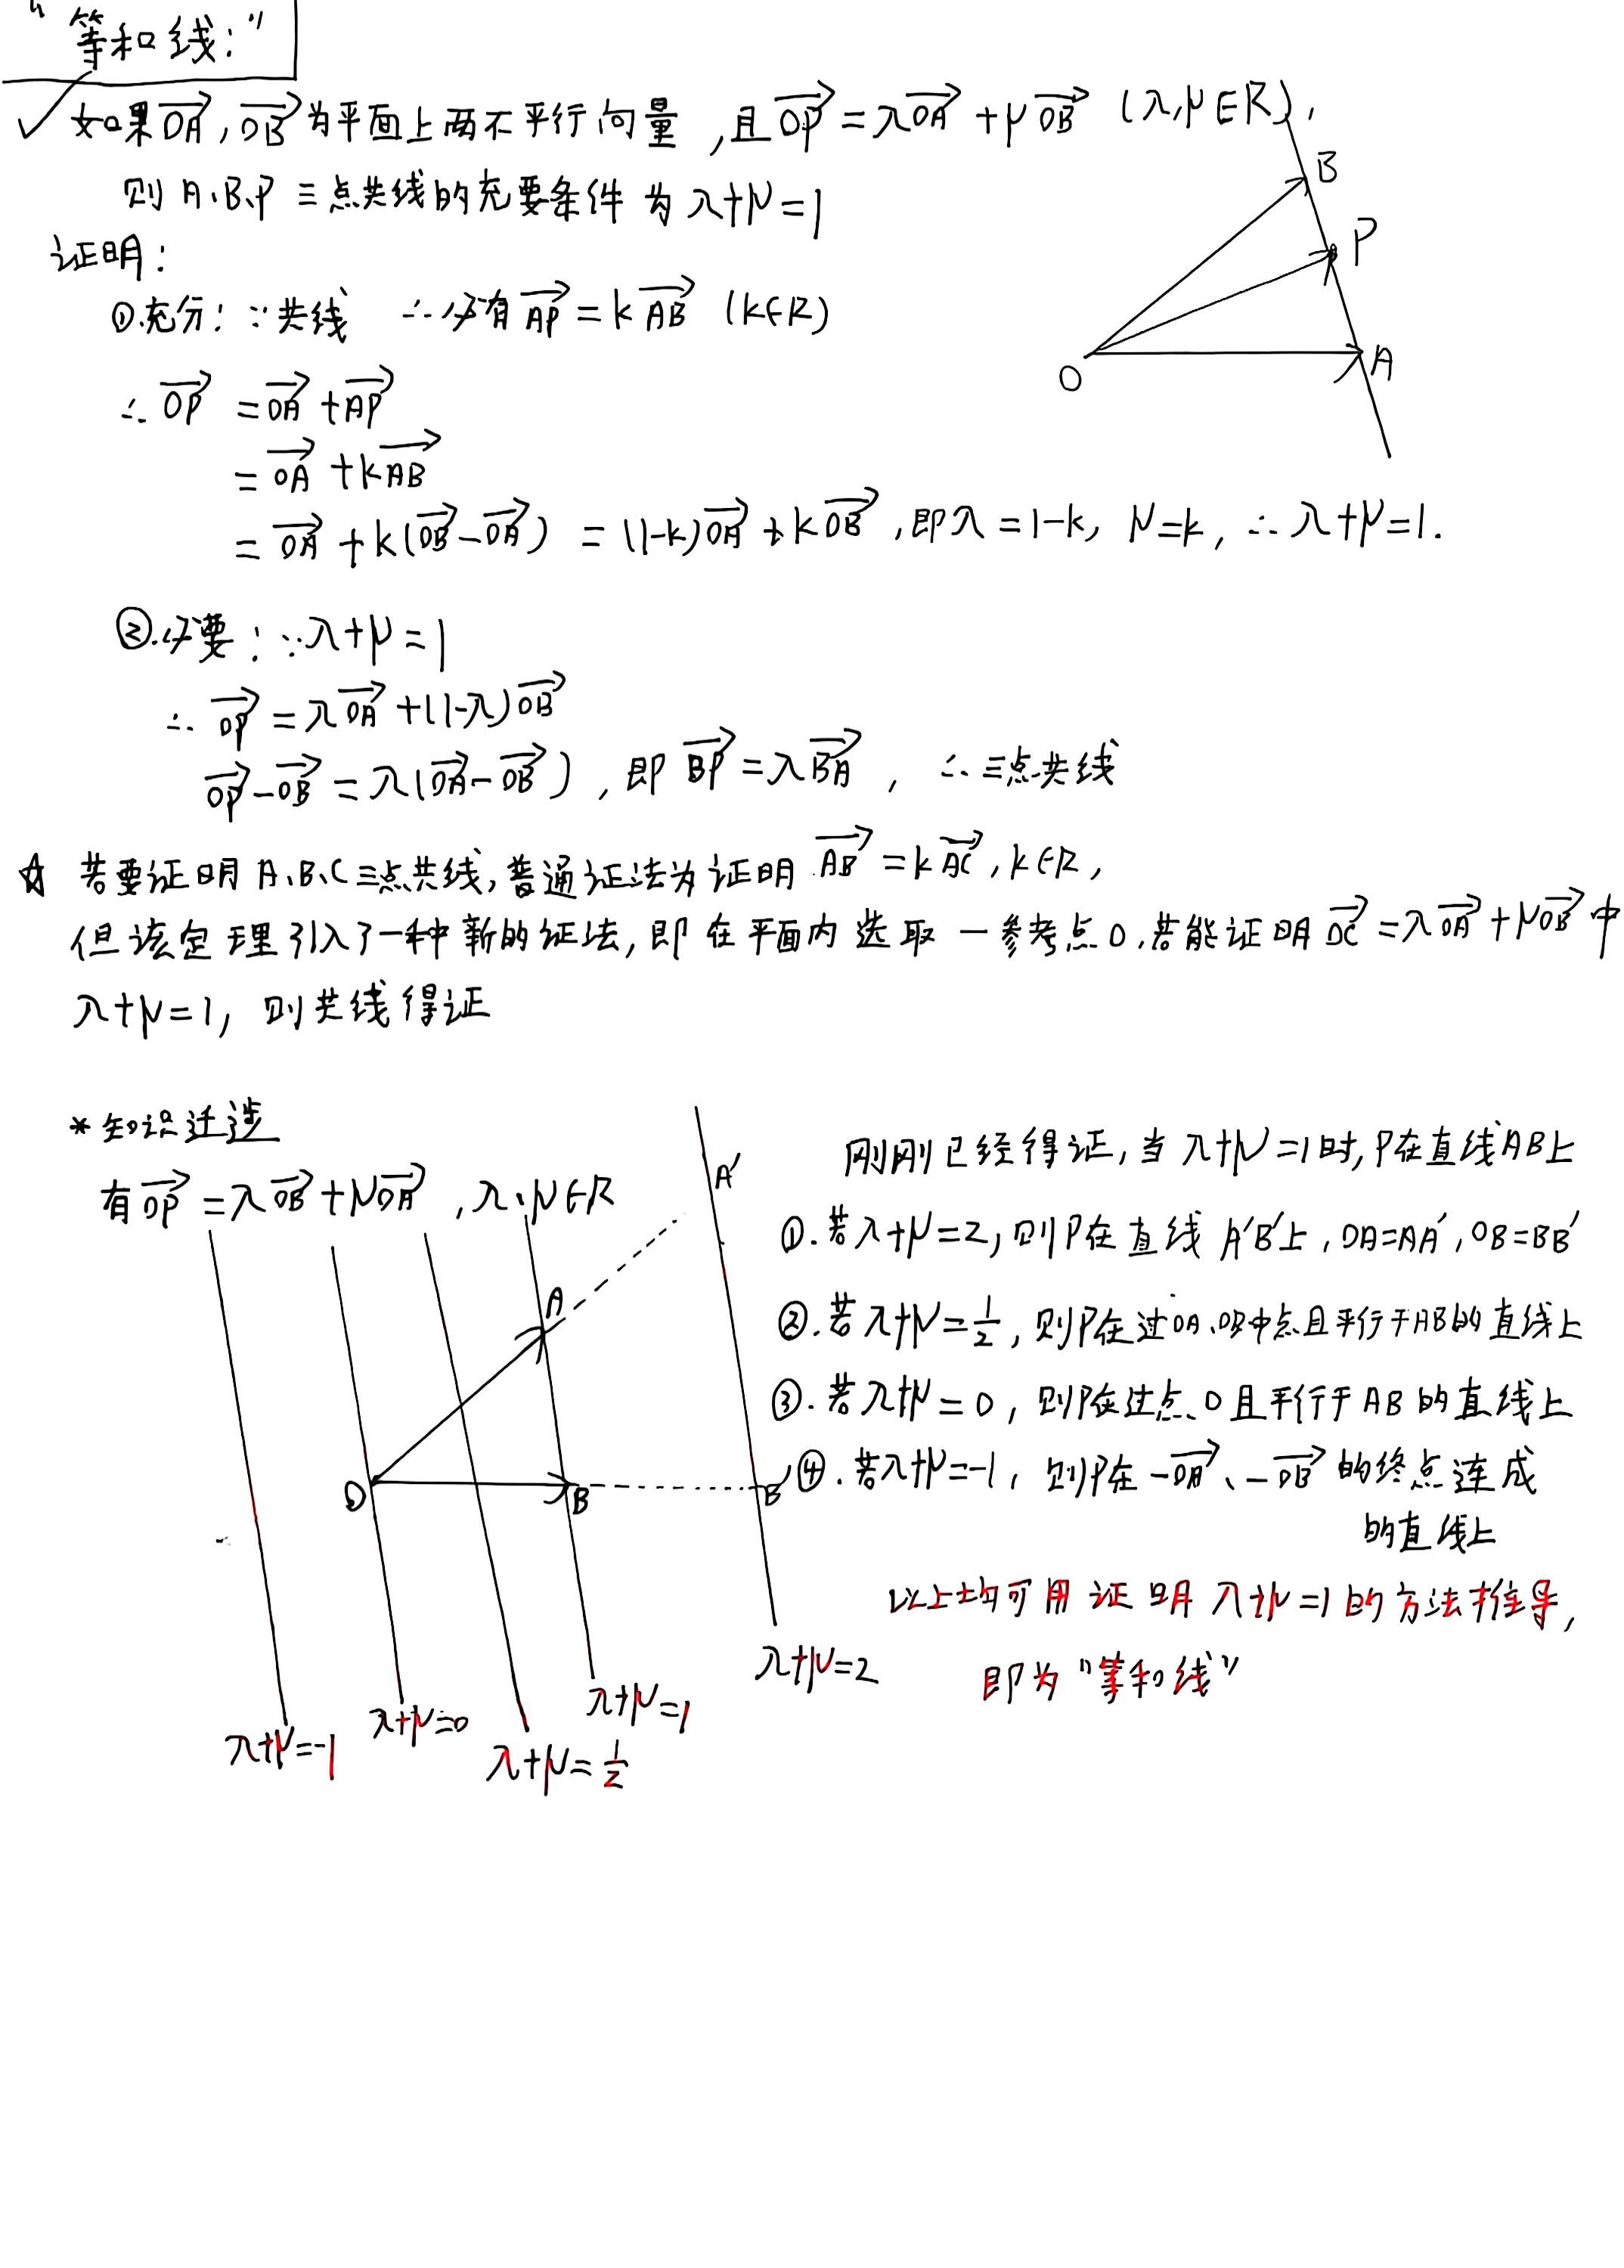 "等和线："
✓ 如果OA，OB为平面上两不平行向量，且OP=λOA+μOB (λ,μ∈R)，
则A、B、P三点共线的充要条件为λ+μ=1
证明：
①.充分：∵共线 ∴必有AP=kAB (k∈R)
∴OP=OA+AP
=OA+kAB
=OA+k(OB-OA)=(1-k)OA+kOB，即λ=1-k，μ=k，∴λ+μ=1.
B
P
O
A
②.必要：∵λ+μ=1
∴OP=λOA+(1-λ)OB
OP-OB=λ(OA-OB)，即BP=λBA，∴三点共线
☆ 若要证明A、B、C三点共线，普通证法为证明AB=kAC，k∈R，
但该定理引入了一种新的证法，即在平面内选取一参考点O，若能证明OC=λOA+μOB中
λ+μ=1，则共线得证
*知识迁造
有OP=λOB+μOA，λ、μ∈R
A'
A
O
B
B'
λ+μ=-1
λ+μ=0
λ+μ=1/2
λ+μ=1
λ+μ=2
刚刚已经得证，当λ+μ=1时，P在直线AB上
①.若λ+μ=2，则P在直线A'B'上，OA=AA'，OB=BB'
②.若λ+μ=1/2，则P在过OA、OB中点且平行于AB的直线上
③.若λ+μ=0，则P在过点O且平行于AB的直线上
④.若λ+μ=-1，则P在-OA、-OB的终点连成
的直线上
以上均可用证明λ+μ=1的方法推导，
即为"等和线"